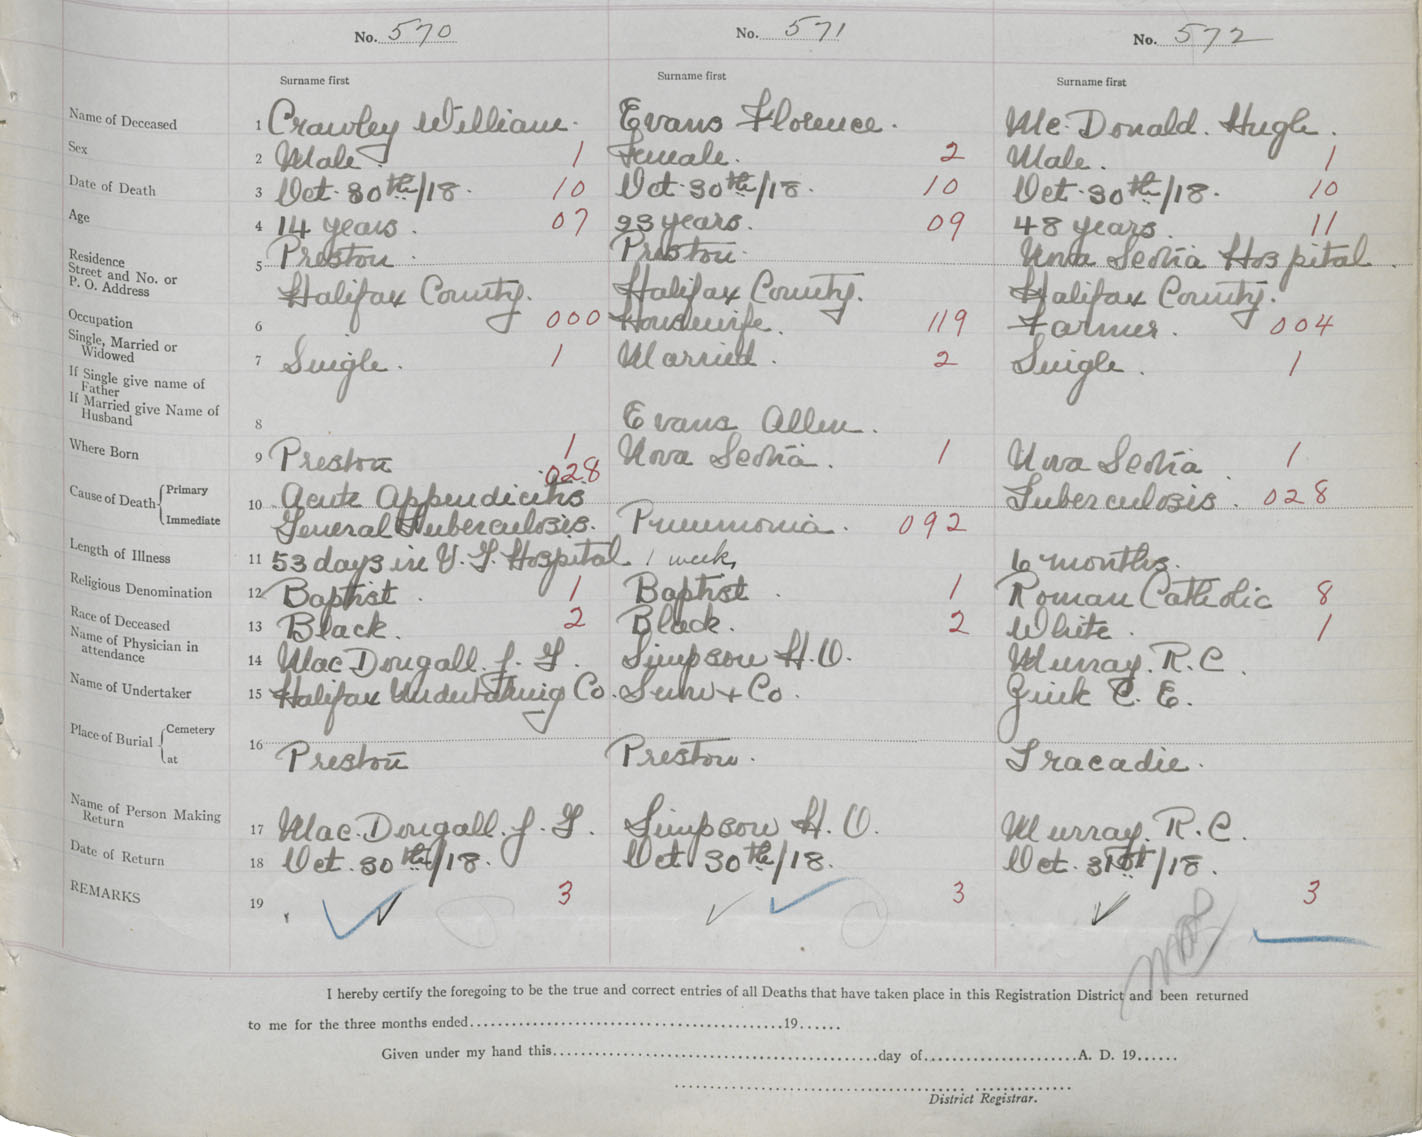 No. 570 No. 571 No. 572
Surname first Surname first Surname first
Name of Deceased 1 Crawley William. Evans Florence. Mc. Donald. Hugh.
Sex 2 Male. 1 Female. 2 Male. 1
Date of Death 3 Oct. 30th/18. 10 Oct. 30th/18. 10 Oct. 30th/18. 10
Age 4 14 years. 07 23 years. 09 48 years. 11
Residence Street and No. or P. O. Address 5 Preston Preston. Nova Scotia Hospital.
Halifax County. Halifax County. Halifax County.
Occupation 6 000 Housewife. 119 Farmer. 004
Single, Married or Widowed 7 Single. 1 Married. 2 Single. 1
If Single give name of Father
If Married give Name of Husband 8 Evans Allen.
Where Born 9 Preston 1 Nova Scotia. 1 Nova Scotia 1
028
Cause of Death Primary 10 Acute Appendicitis Tuberculosis. 028
Immediate General Tuberculosis. Pneumonia. 092
Length of Illness 11 53 days in V. G. Hospital. 1 week, 6 months.
Religious Denomination 12 Baptist. 1 Baptist. 1 Roman Catholic 8
Race of Deceased 13 Black. 2 Black. 2 White. 1
Name of Physician in attendance 14 MacDougall. J. G. Simpson H. O. Murray. R. C.
Name of Undertaker 15 Halifax Undertaking Co. Snow & Co. Zink C. E.
Place of Burial Cemetery 16
at Preston Preston. Tracadie.
Name of Person Making Return 17 Mac. Dougall. J. G. Simpson H. O. Murray. R. C.
Date of Return 18 Oct. 30th/18. Oct 30th/18. Oct. 31st/18.
REMARKS 19 3 3 3
I hereby certify the foregoing to be the true and correct entries of all Deaths that have taken place in this Registration District and been returned
to me for the three months ended 19
Given under my hand this day of A. D. 19
District Registrar.